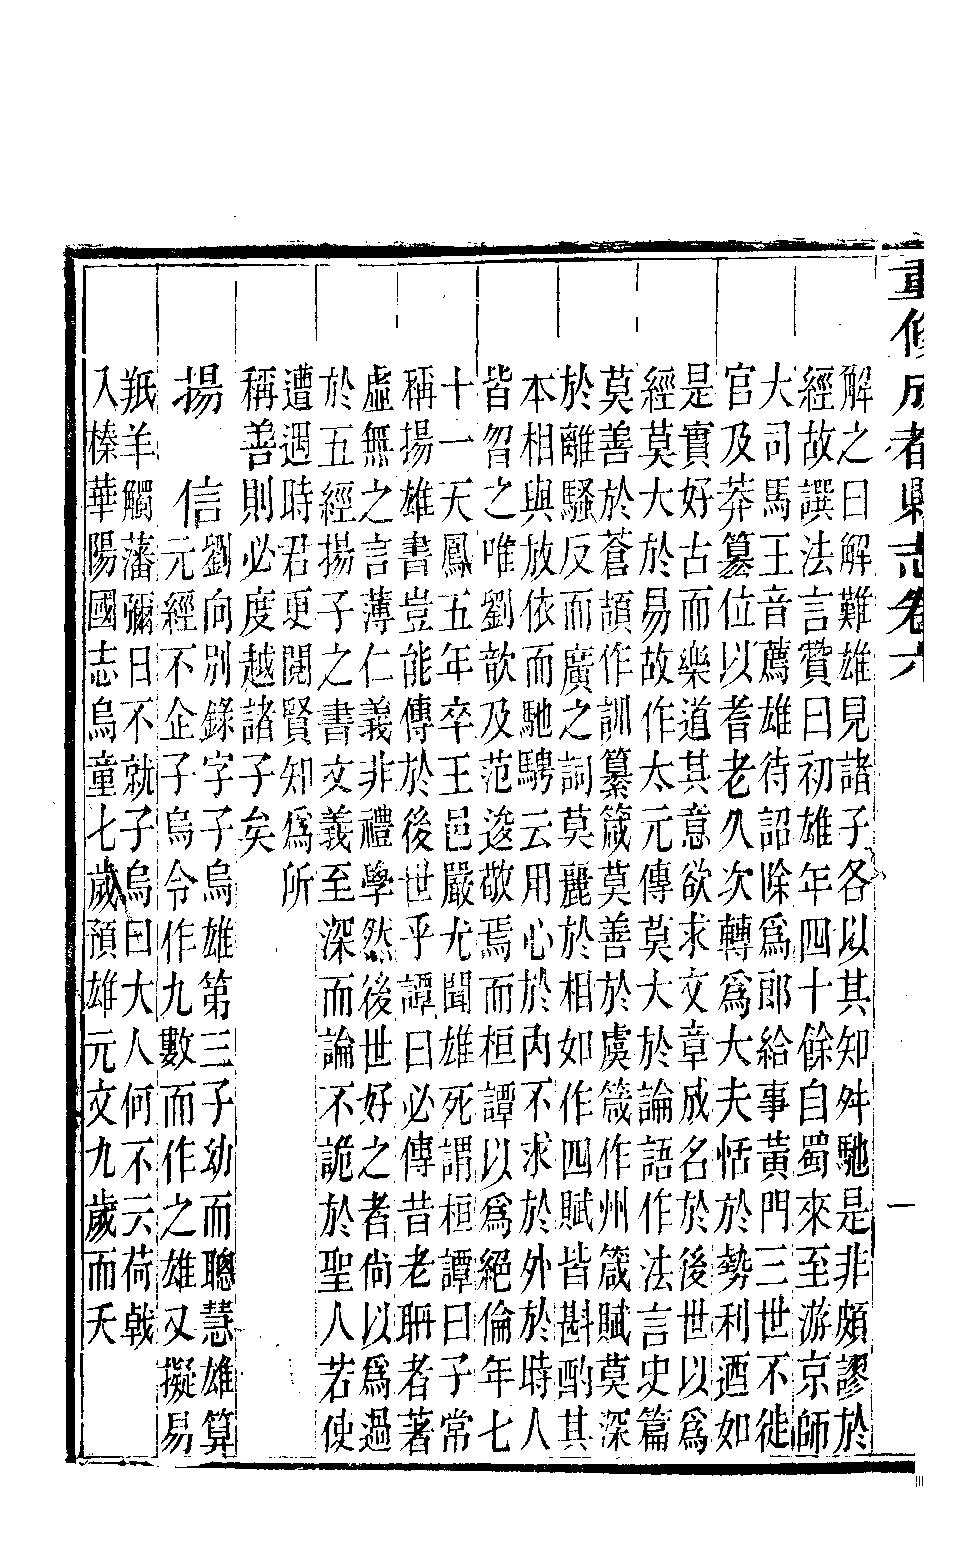 重修成都縣志卷六
一
解之曰解難雄見諸子各以其知舛馳是非頗謬於
經故譔法言贊曰初雄年四十餘自蜀來至游京師
大司馬王音薦雄待詔除爲郎給事黃門三世不徙
官及莽篡位以耆老久次轉爲大夫恬於勢利迺如
是實好古而樂道其意欲求文章成名於後世以爲
經莫大於易故作太元傳莫大於論語作法言史篇
莫善於蒼頡作訓纂箴莫善於虞箴作州箴賦莫深
於離騷反而廣之詞莫麗於相如作四賦皆斟酌其
本相與放依而馳騁云用心於內不求於外於時人
皆曶之唯劉歆及范逡敬焉而桓譚以爲絕倫年七
十一天鳳五年卒王邑嚴尤聞雄死謂桓譚曰子常
稱揚雄書豈能傳於後世乎譚曰必傳昔老聃者著
虛無之言薄仁義非禮學然後世好之者尙以爲過
於五經揚子之書文義至深而論不詭於聖人若使
遭遇時君更閱賢知爲所
稱善則必度越諸子矣
揚信
劉向別錄字子烏雄第三子幼而聰慧雄算
元經不企子烏令作九數而作之雄又擬易
羝羊觸藩彌日不就子烏曰大人何不云荷戟
入榛華陽國志烏童七歲預雄元文九歲而夭